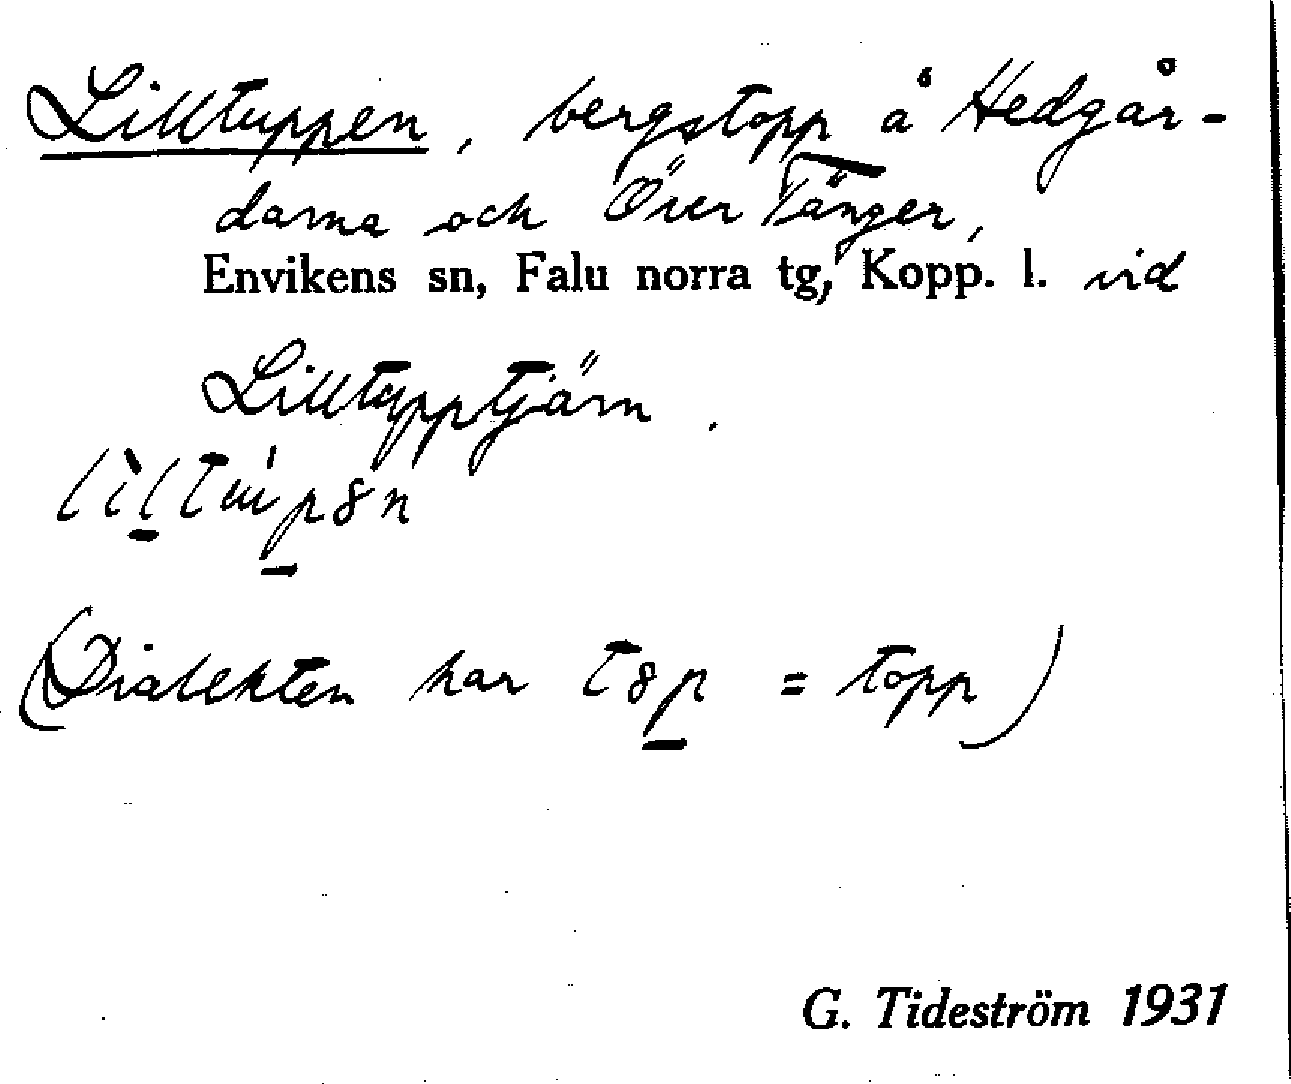 Lilltuppen, bergstopp å Hedgår-
darna och Över Tänger,
Envikens sn, Falu norra tg, Kopp. l. vid
Lilltypptjärn.
(Dialekten har = topp)
G. Tideström 1931